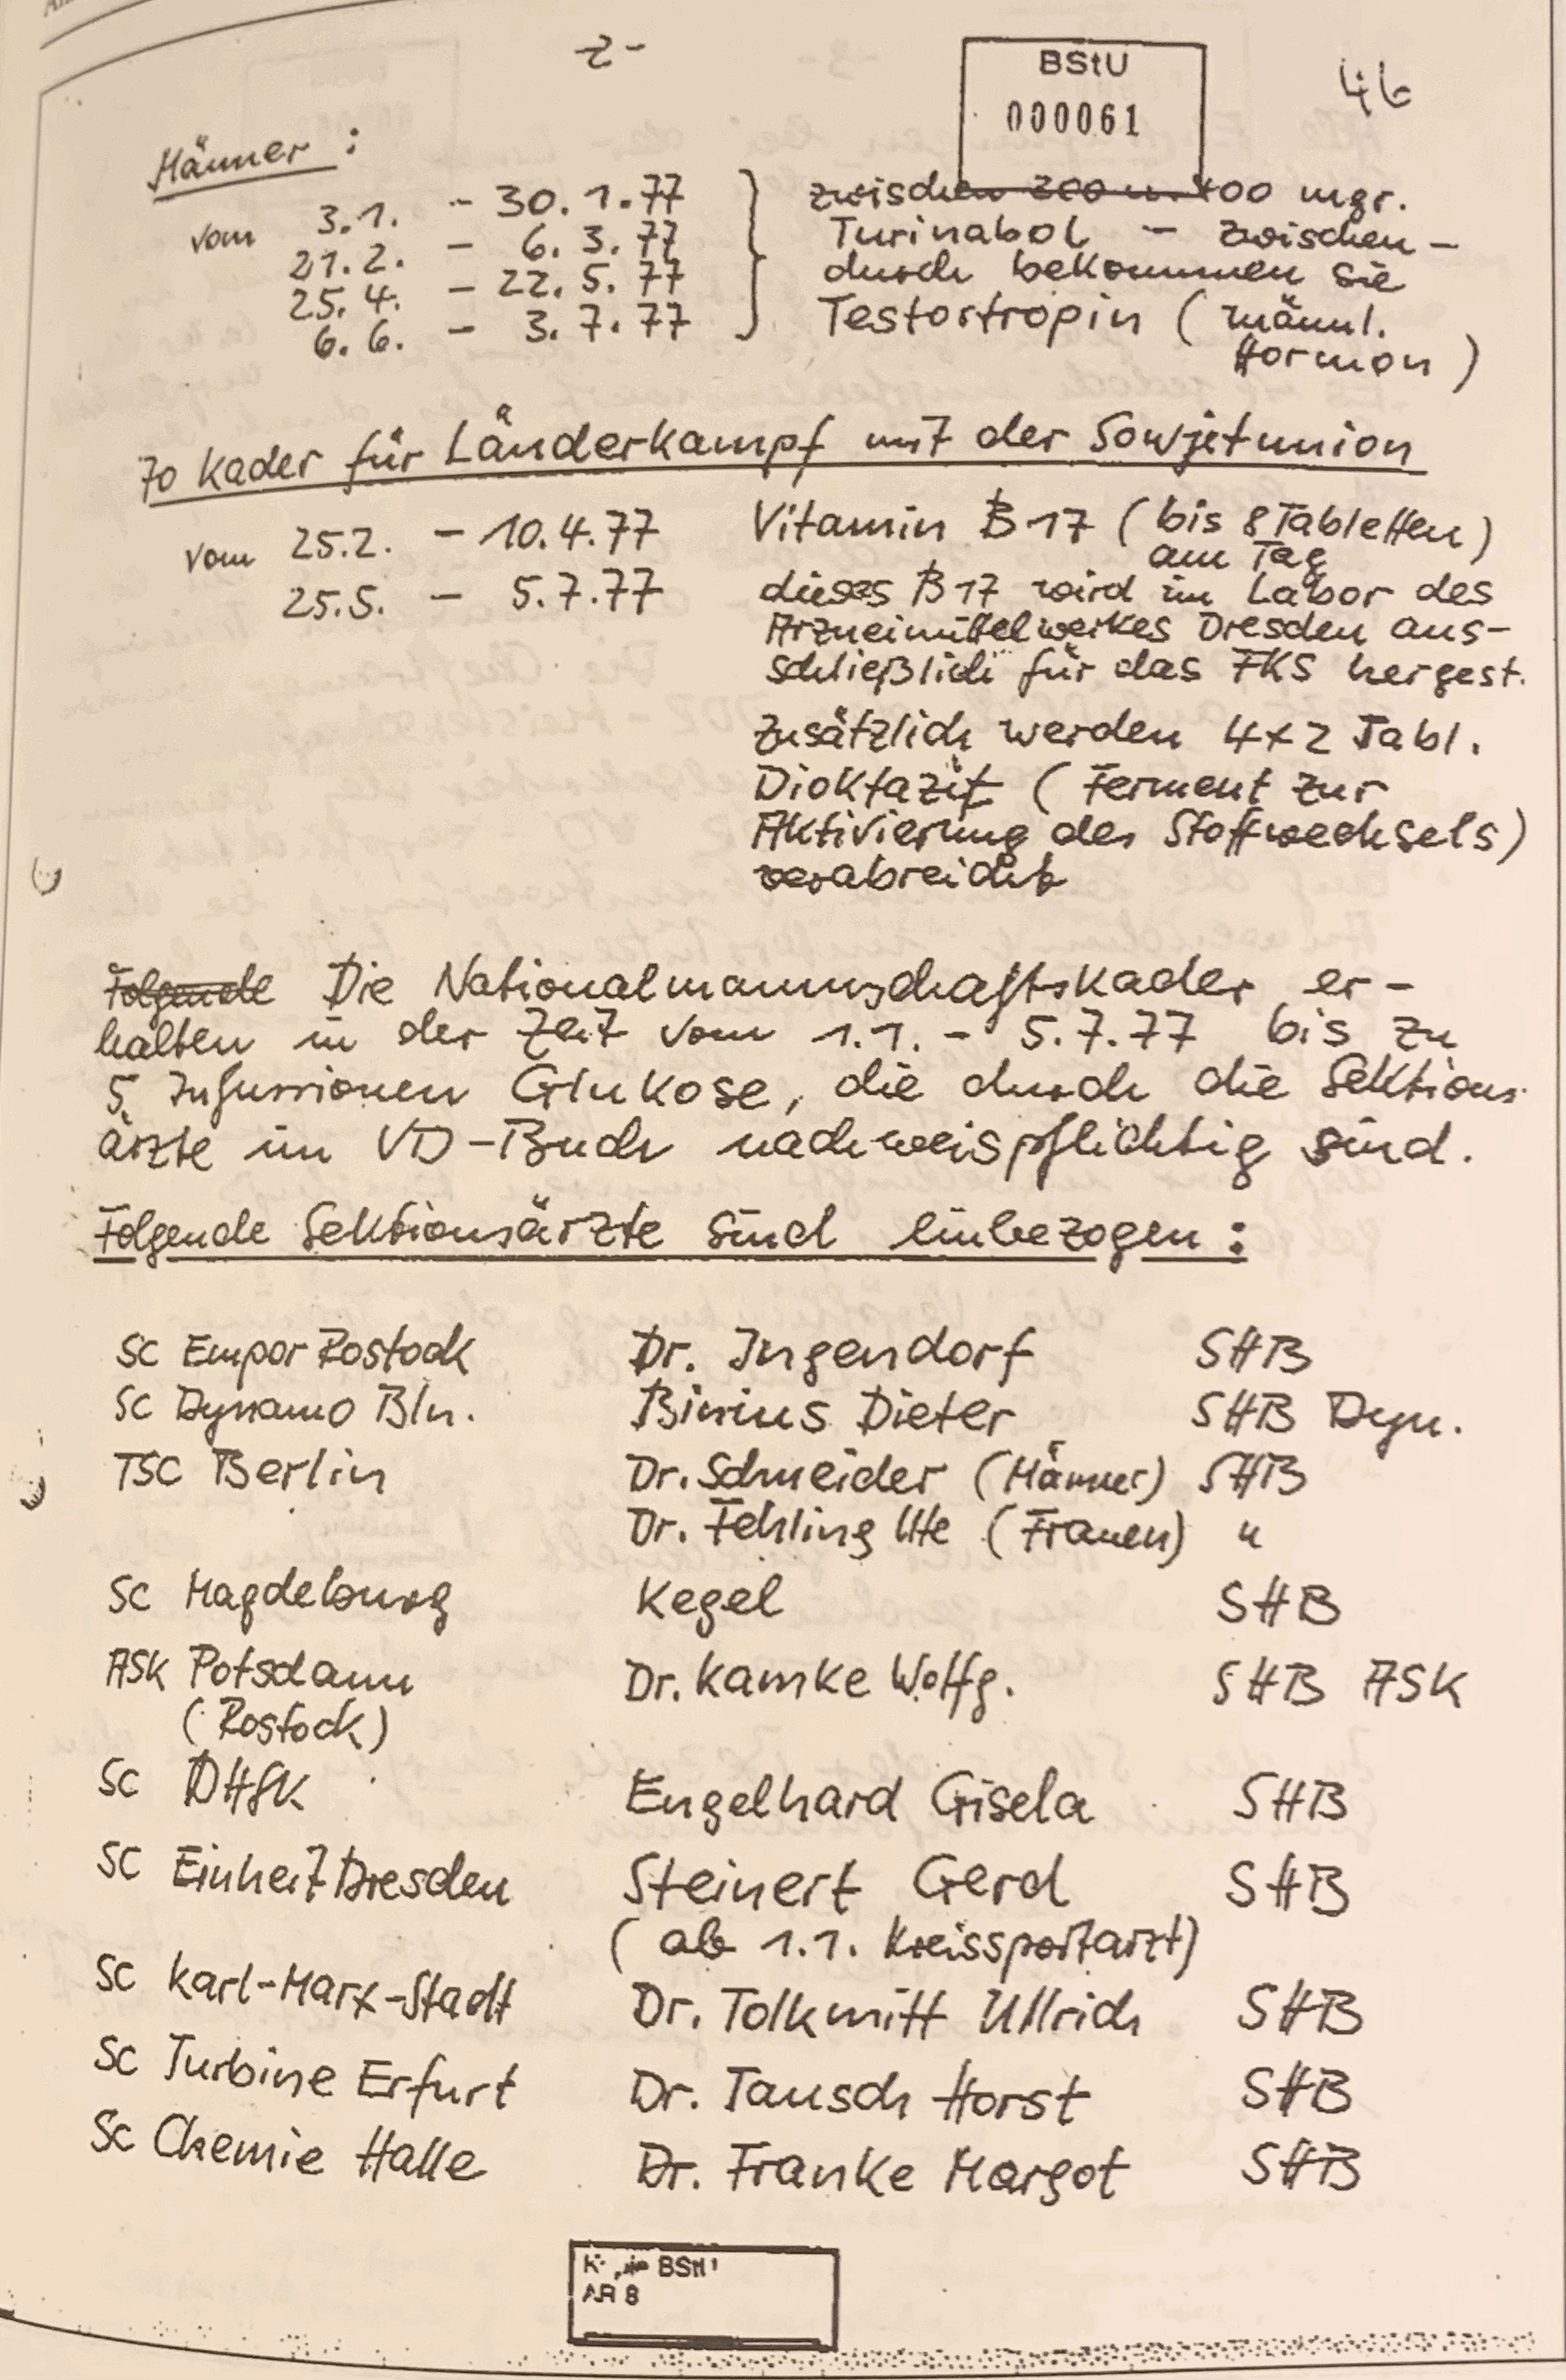 -2-
BStU
000061
46
Männer :
vom 3.1. - 30.1.77
21.2. - 6.3.77
25.4. - 22.5.77
6.6. - 3.7.77
zwischen 300 u. 400 mgr.
Turinabol - zwischen-
durch bekommen sie
Testortropin (männl.
Hormon)
70 Kader für Länderkampf mit der Sowjetunion
vom 25.2. - 10.4.77
25.5. - 5.7.77
Vitamin B 17 (bis 8 Tabletten)
am Tag
dieses B 17 wird im Labor des
Arzneimittelwerkes Dresden aus-
schließlich für das FKS hergest.
Zusätzlich werden 4x2 Tabl.
Dioktazit (Ferment zur
Aktivierung des Stoffwechsels)
verabreicht
Folgende Die Nationalmannschaftskader er-
halten in der Zeit vom 1.1. - 5.7.77 bis zu
5 Infussionen Glukose, die durch die Sektions-
ärzte im VD-Buch nachweispflichtig sind.
Folgende Sektionsärzte sind einbezogen :
SC Empor Rostock Dr. Ingendorf SHB
SC Dynamo Bln. Binius Dieter SHB Dyn.
TSC Berlin Dr. Schneider (Männer) SHB
Dr. Fehling Ute (Frauen) "
SC Magdeburg Kegel SHB
ASK Potsdam Dr. Kamke Wolfg. SHB ASK
(Rostock)
SC DHfK Engelhard Gisela SHB
SC Einheit Dresden Steinert Gerd SHB
(ab 1.1. Kreissportarzt)
SC Karl-Marx-Stadt Dr. Tolkmitt Ullrich SHB
SC Turbine Erfurt Dr. Tausch Horst SHB
SC Chemie Halle Dr. Franke Margot SHB
BStU
AR 8